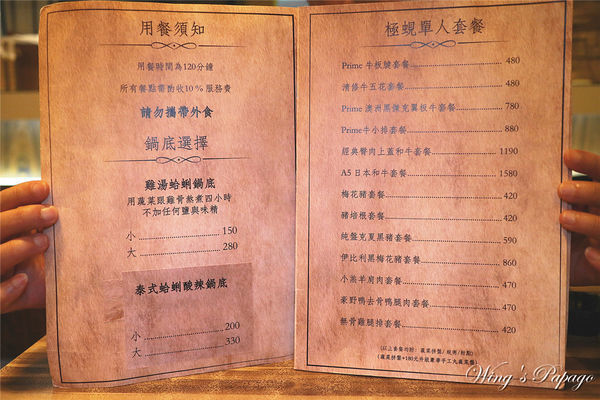 用餐須知
用餐時間為120分鐘
所有餐點需酌收10%服務費
請勿攜帶外食
鍋底選擇
雞湯蛤蜊鍋底
用蔬菜跟雞骨熬煮四小時
不加任何鹽與味精
小 150
大 280
泰式蛤蜊酸辣鍋底
小 200
大 330
極蜆單人套餐
Prime 牛板腱套餐 480
清修牛五花套餐 480
Prime 澳洲黑傑克翼板牛套餐 780
Prime牛小排套餐 880
經典臀肉上蓋和牛套餐 1190
A5 日本和牛套餐 1580
梅花豬套餐 420
豬培根套餐 420
純盤克夏黑豬套餐 590
伊比利黑梅花豬套餐 860
小羔羊肩肉套餐 470
豪野鴨去骨鴨腿肉套餐 470
無骨雞腿排套餐 420
(以上套餐內附: 蔬菜拼盤/ 蜆粥/ 甜點)
(蔬菜拼盤+180元升級豪華手工丸蔬菜盤)
Wing's Papago